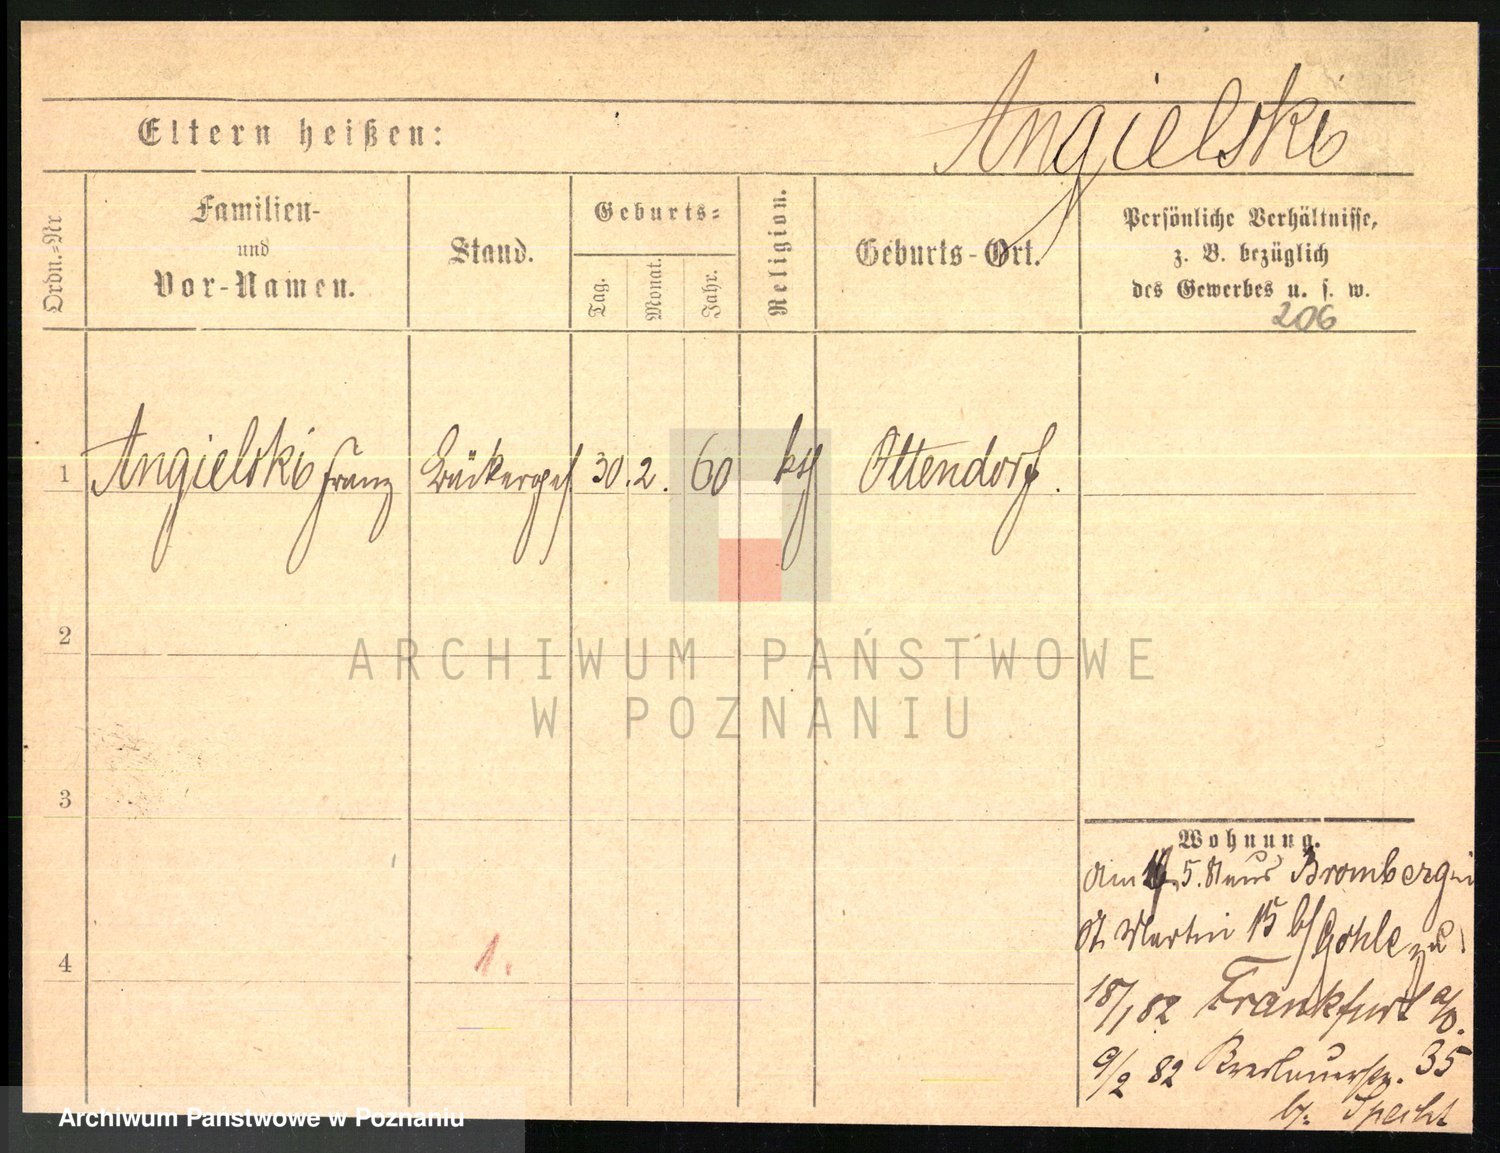 Angielski
Eltern heißen:
Ordn.=Nr
Familien-
und
Vor-Namen.
Stand.
Geburts=
Tag.
Monat.
Jahr.
Religion.
Geburts-Ort.
Persönliche Verhältnisse,
z. B. bezüglich
des Gewerbes u. s. w.
206
1 Angielski Franz Bäckerges 30. 2. 60 kth Ottendorf.
2
ARCHIWUM PAŃSTWOWE
W POZNANIU
3
4
1.
Wohnung.
Am 5. aus Bromberg
St Martin 15 b/ Gohle zu
18/1 82 Frankfurt a/O.
9/2 82 Breslauerstr. 35
b. Specht
Archiwum Państwowe w Poznaniu